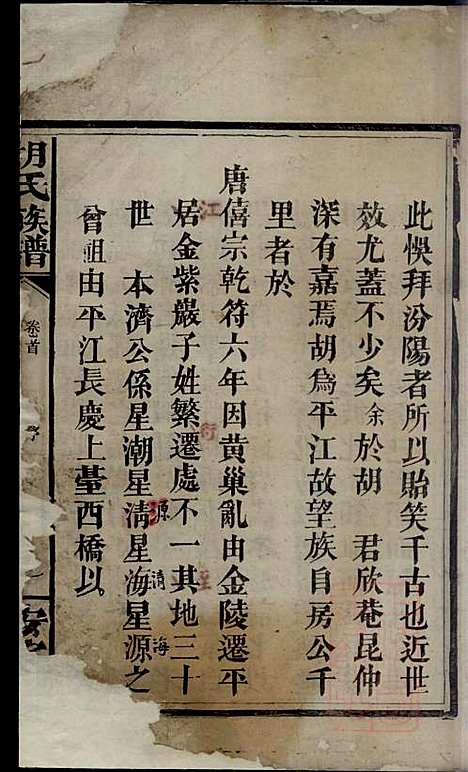 此悞拜汾陽者所以貽笑千古也近世
效尤蓋不少矣余於胡　君欣菴昆仲
深有嘉焉胡為平江故望族自房公千
里者於
唐僖宗乾符六年因黃巢亂由金陵遷平
江
居金紫巖子姓繁衍遷處不一其地至三十
世　本濟公係星潮星清星海星源之
源　清　海
曾祖由平江長慶上臺西橋以
胡氏族譜
卷首
序